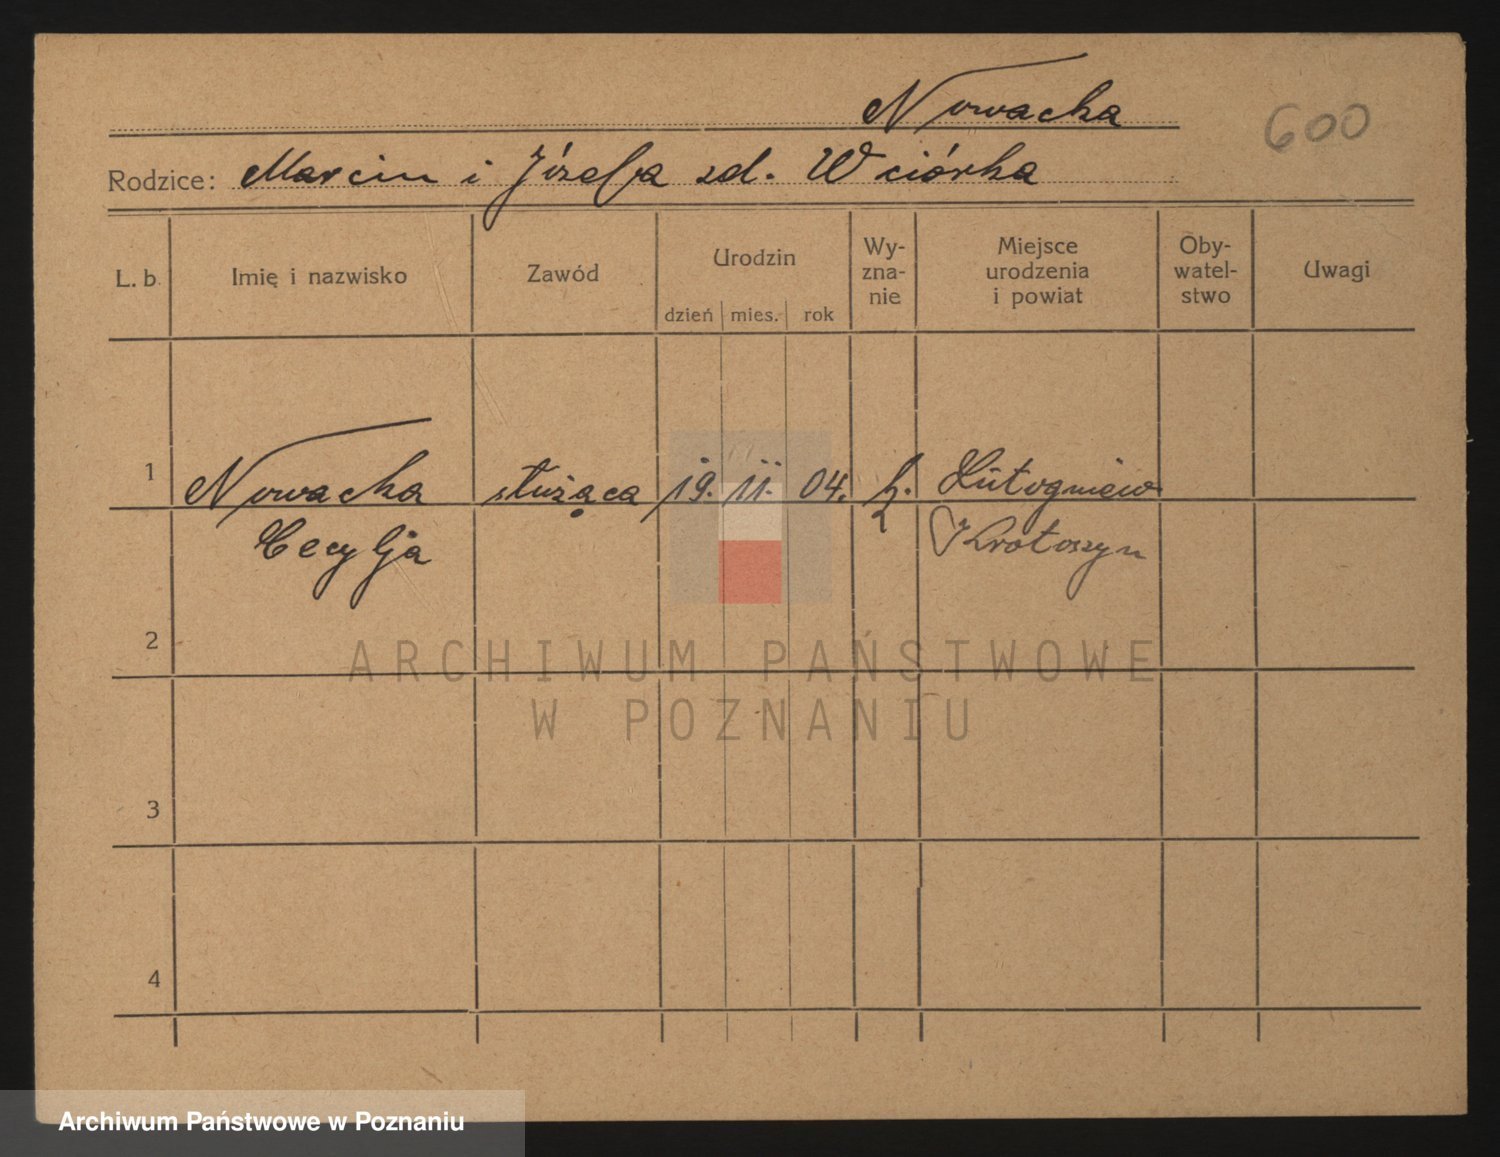 Nowacka
600
Rodzice: Marcin i Józefa zd. Wciórka
L. b. Imię i nazwisko Zawód Urodzin dzień mies. rok Wy-zna-nie Miejsce urodzenia i powiat Oby-watel-stwo Uwagi
1 Nowacka służąca 19. 11. 04. Lutogniew
Cecylja Krotoszyn
2
ARCHIWUM PAŃSTWOWE
W POZNANIU
3
4
Archiwum Państwowe w Poznaniu